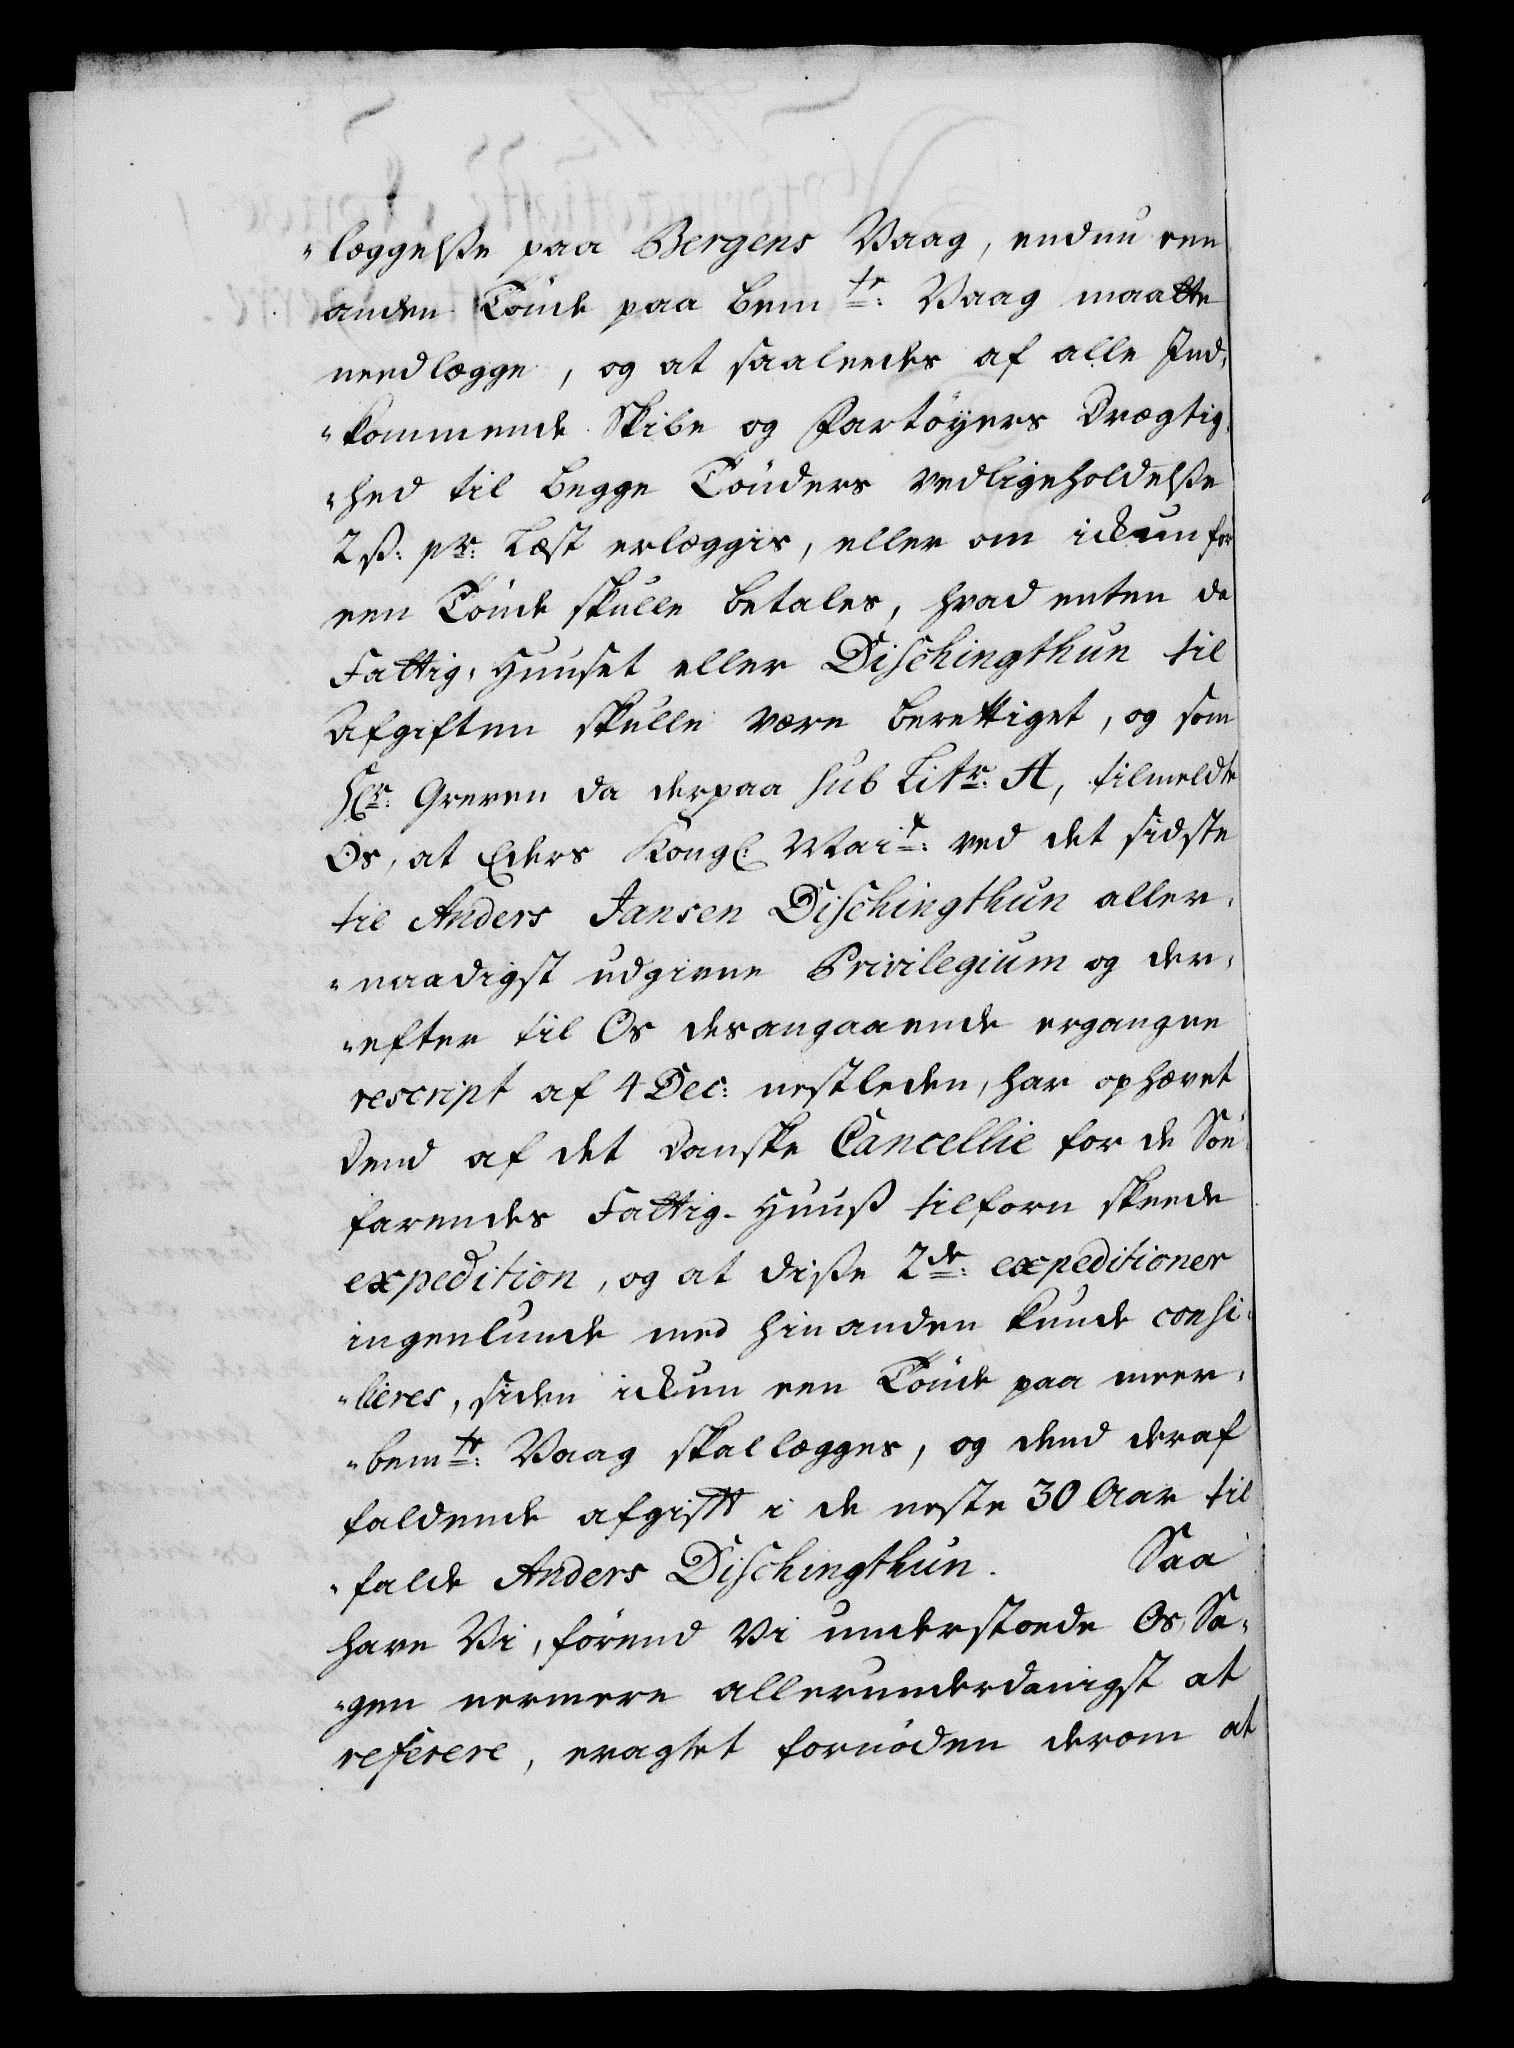 "læggelsse paa Bergens Vaag, endnu een
anden Tönde paa bemte: Vaag maatte
needlægge, og at saaleedes af alle Ind,
"kommende Skibe og Fartöyers Drægtig,
"hed til begge Tönders vedligeholdelsse
2 ß: pr: Læst erlæggis, eller om ickun for
een Tönde skulle betales, hvad enten da
Fattig-Huuset eller Dischingthun til
Afgiften skulle være berettiget, og som
Hr: Greven da derpaa sub Litr: A, tilmeldte
Os, at Eders Kongl: Mait: ved det sidste
til Anders Jansen Dischingthun aller,
"naadigst udgivne Privilegium og der,
"efter til Os desangaaende ergangne
rescript af 4 Dec: nestleden, har ophævet
Dend af det Danske Cancellie for de Söe,
farendes Fattig-Huuß tilforn skeede
expedition, og at disse 2de: expeditioner
ingenlunde med hinanden kunde consi,
"lieres, siden ickun een Tönde paa meer,
"bemte: Vaag skal lægges, og dend deraf
faldende afgifft i de neste 30 Aar til
"falde Anders Dischingthun. Saa
have Vi, förend Vi understoede Os Sa,
"gen nermere allerunderdanigst at
referere, eragtet fornöden derom at